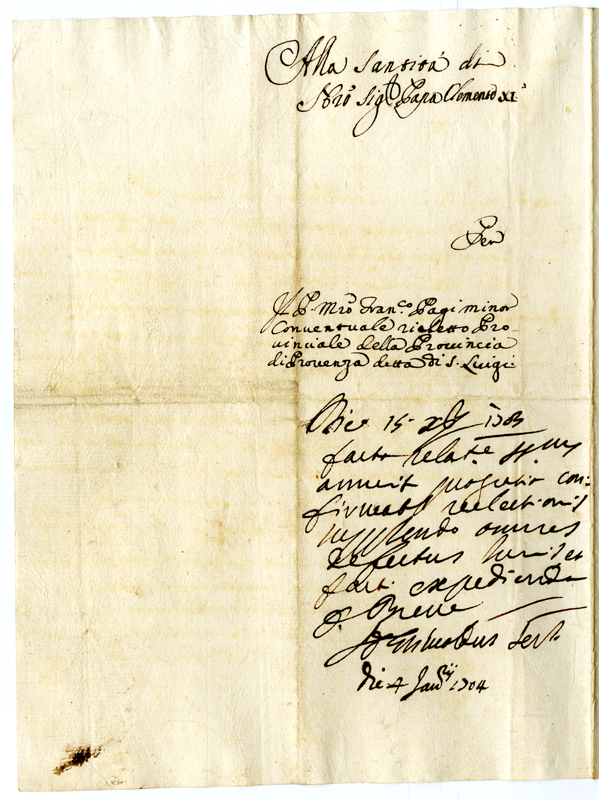 Alla Santità di
Nrō Sigᵉ Papa Clemente XI°
Per
Il P. Mrō Fran.co Pagi minor
Conventuale rieletto Pro-
vinciale della Provincia
di Provenza detta di S. Luigi
Die 15 Xbr 1703
facta relatᵉ SSmus
annuit
firmatᵉ reelectionis
supplendo omnes
defectus
expedienda
Breve
die 4 Janrij 1704